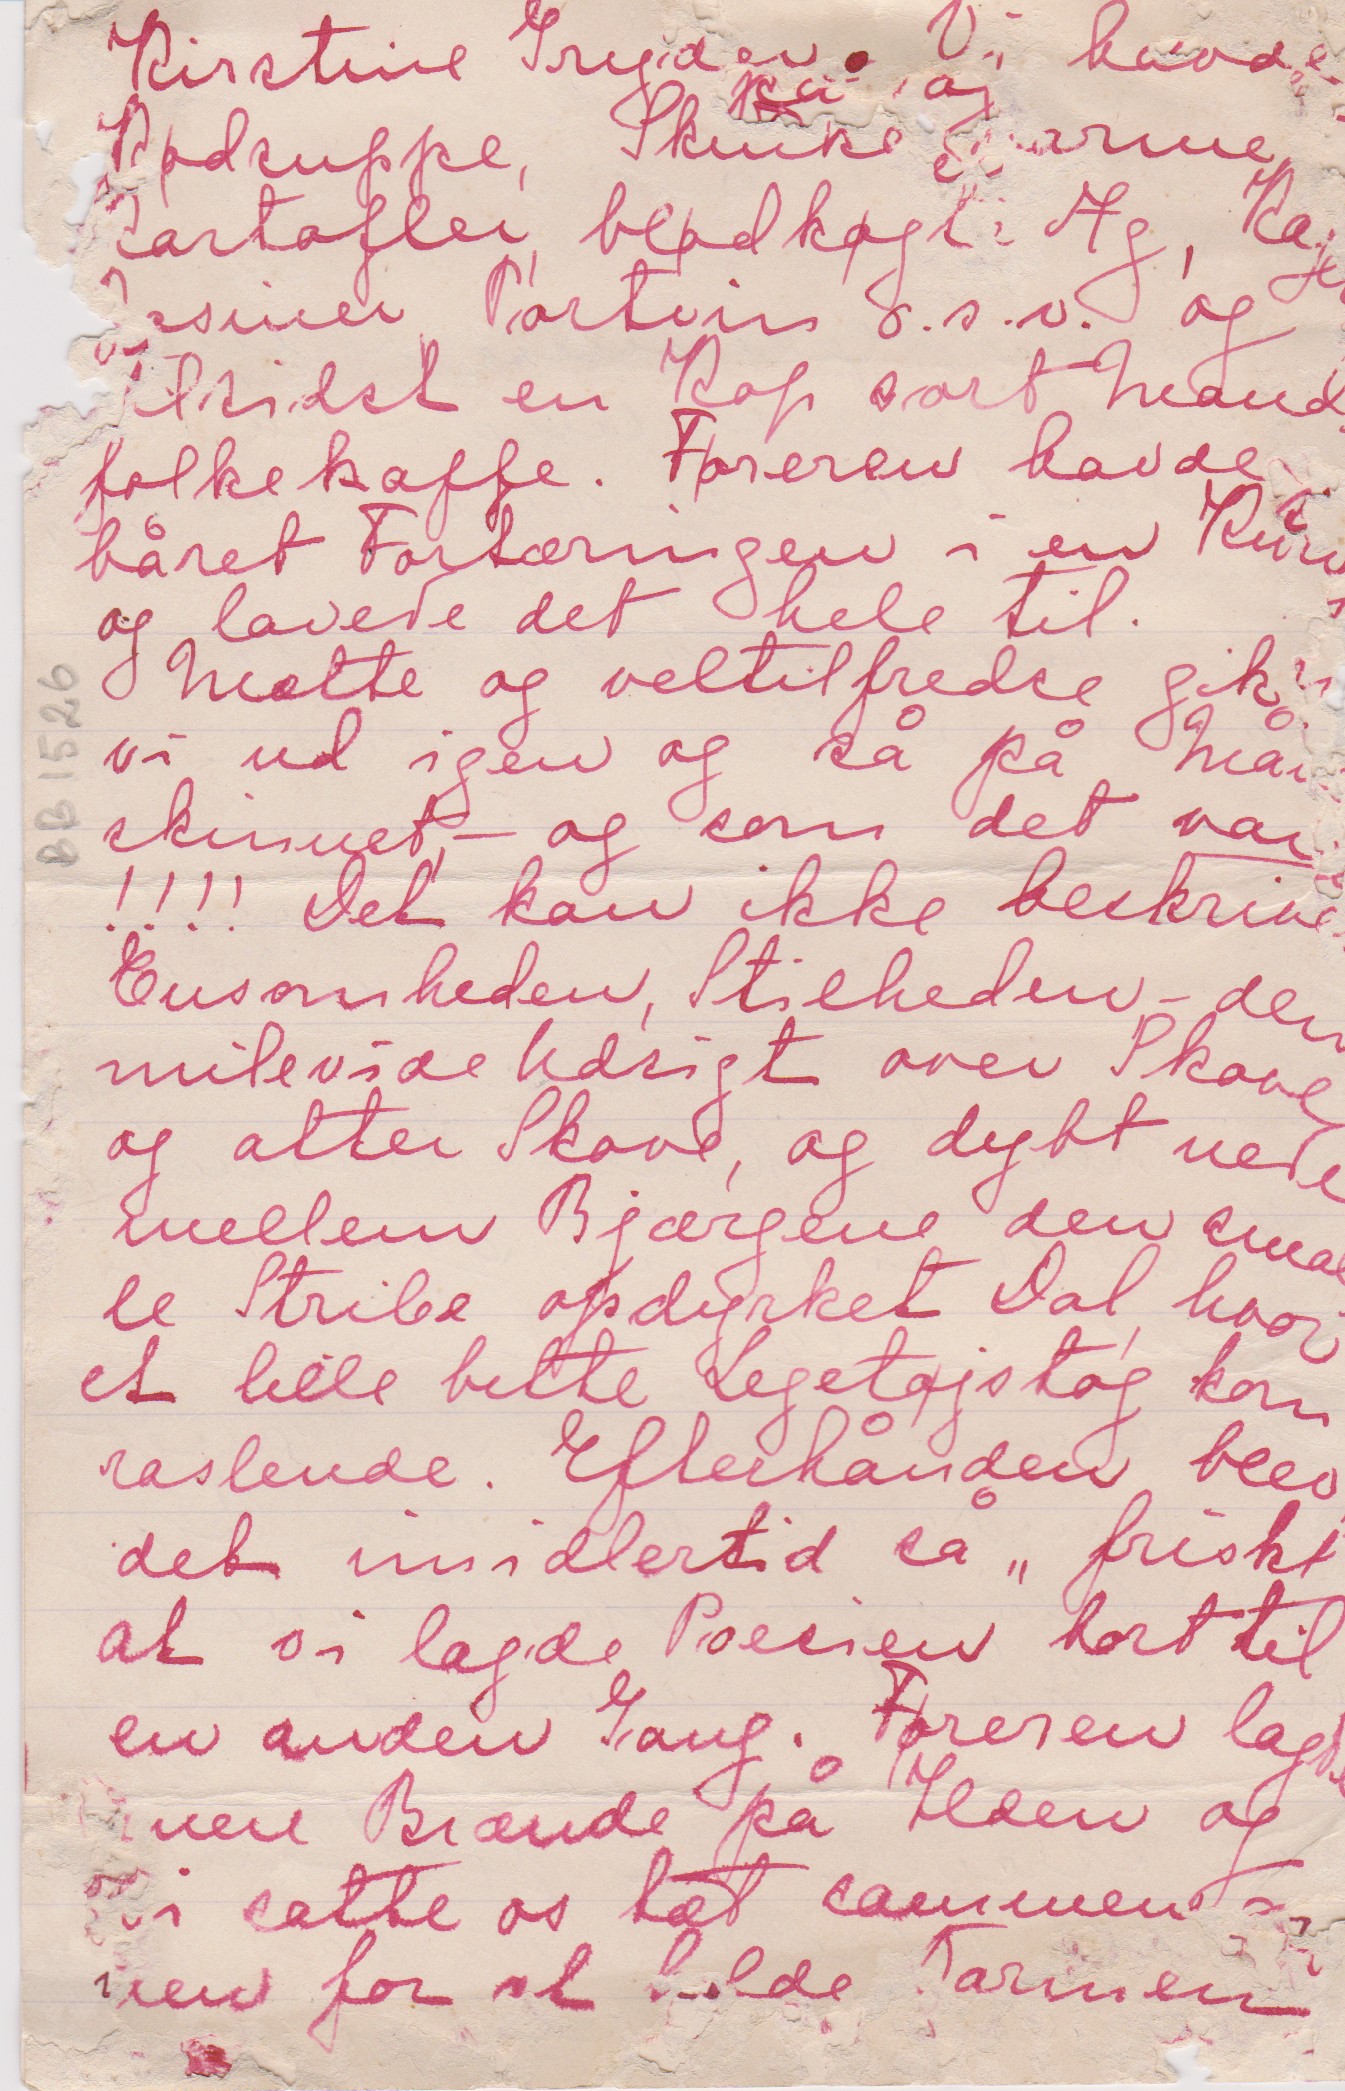 Kirstine Gryden. Vi havde
Kødsuppe, Skinke
Kartofler, blødkogte Æg,
Portvin o.s.v. og
tilsidst en Kop sort Mand
folkekaffe. Føreren havde
båret Fortæringen i en Kurv
og lavede det hele til.
Mætte og veltilfredse gik
vi ud igen og så på Måne
skinnet, – og som det var
!!!! Det kan ikke beskrives
Ensomheden, Stilheden – den
milevide Udsigt over Skove
og atter Skove, og dybt nede
mellem Bjærgene den smal
le Stribe opdyrket Dal, hvor
et lille bitte Legetøjstog kom
raslende. Efterhånden blev
det imidlertid så „ friskt
at vi lagde Poesien bort til
en anden Gang. Føreren lagde
mere Brænde på Ilden og
vi satte os tæt sammen
men for at holde Varmen
BB 1526